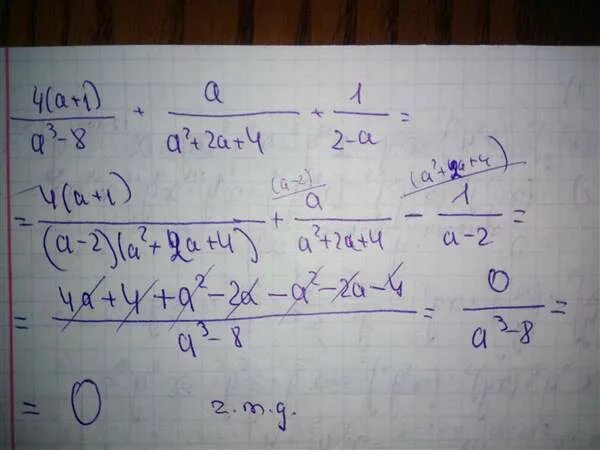 4(a+1)/(a³-8) + a/(a²+2a+4) + 1/(2-a) =
= 4(a+1)/((a-2)(a²+2a+4)) + (a-2) a/(a²+2a+4) - (a²+2a+4) 1/(a-2) =
= (4a+4+a²-2a-a²-2a-4)/(a³-8) = 0/(a³-8) =
= 0 г.т.д.